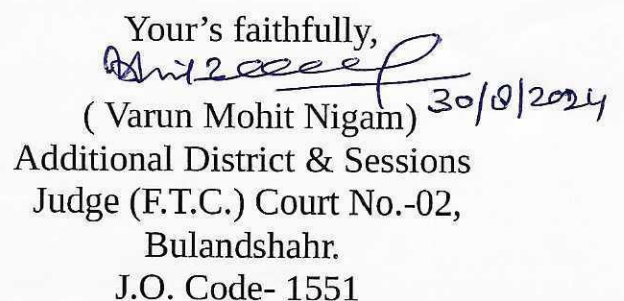 Your’s faithfully,
( Varun Mohit Nigam) 30/8/2024
Additional District & Sessions
Judge (F.T.C.) Court No.-02,
Bulandshahr.
J.O. Code- 1551